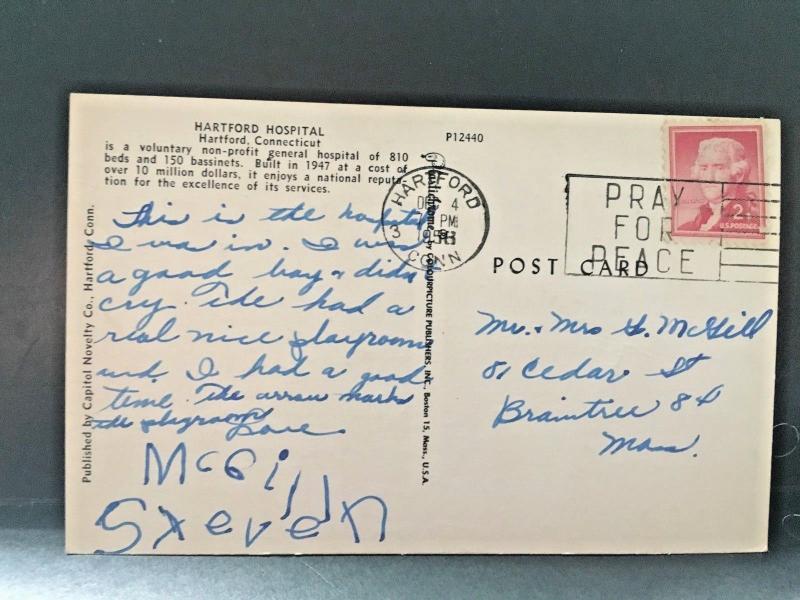 HARTFORD HOSPITAL
Hartford, Connecticut
is a voluntary non-profit general hospital of 810
beds and 150 bassinets. Built in 1947 at a cost of
over 10 million dollars, it enjoys a national reputa-
tion for the excellence of its services.
This is the hospital
I was in. I was
a good boy + didn
cry. The had a
real nice playroom
and. I had a good
time. The arrow marks
the playroom
Love
McGill
Steven
Published by Capitol Novelty Co., Hartford, Conn.
by COLOURPICTURE PUBLISHERS, INC., Boston 15, Mass., U.S.A.
P12440
HARTFORD
4
PM
CONN
PRAY
FOR
PEACE
2¢
U.S. POSTAGE
POST CARD
Mr. + Mrs G. McGill
81 Cedar St
Braintree 84
Mass.